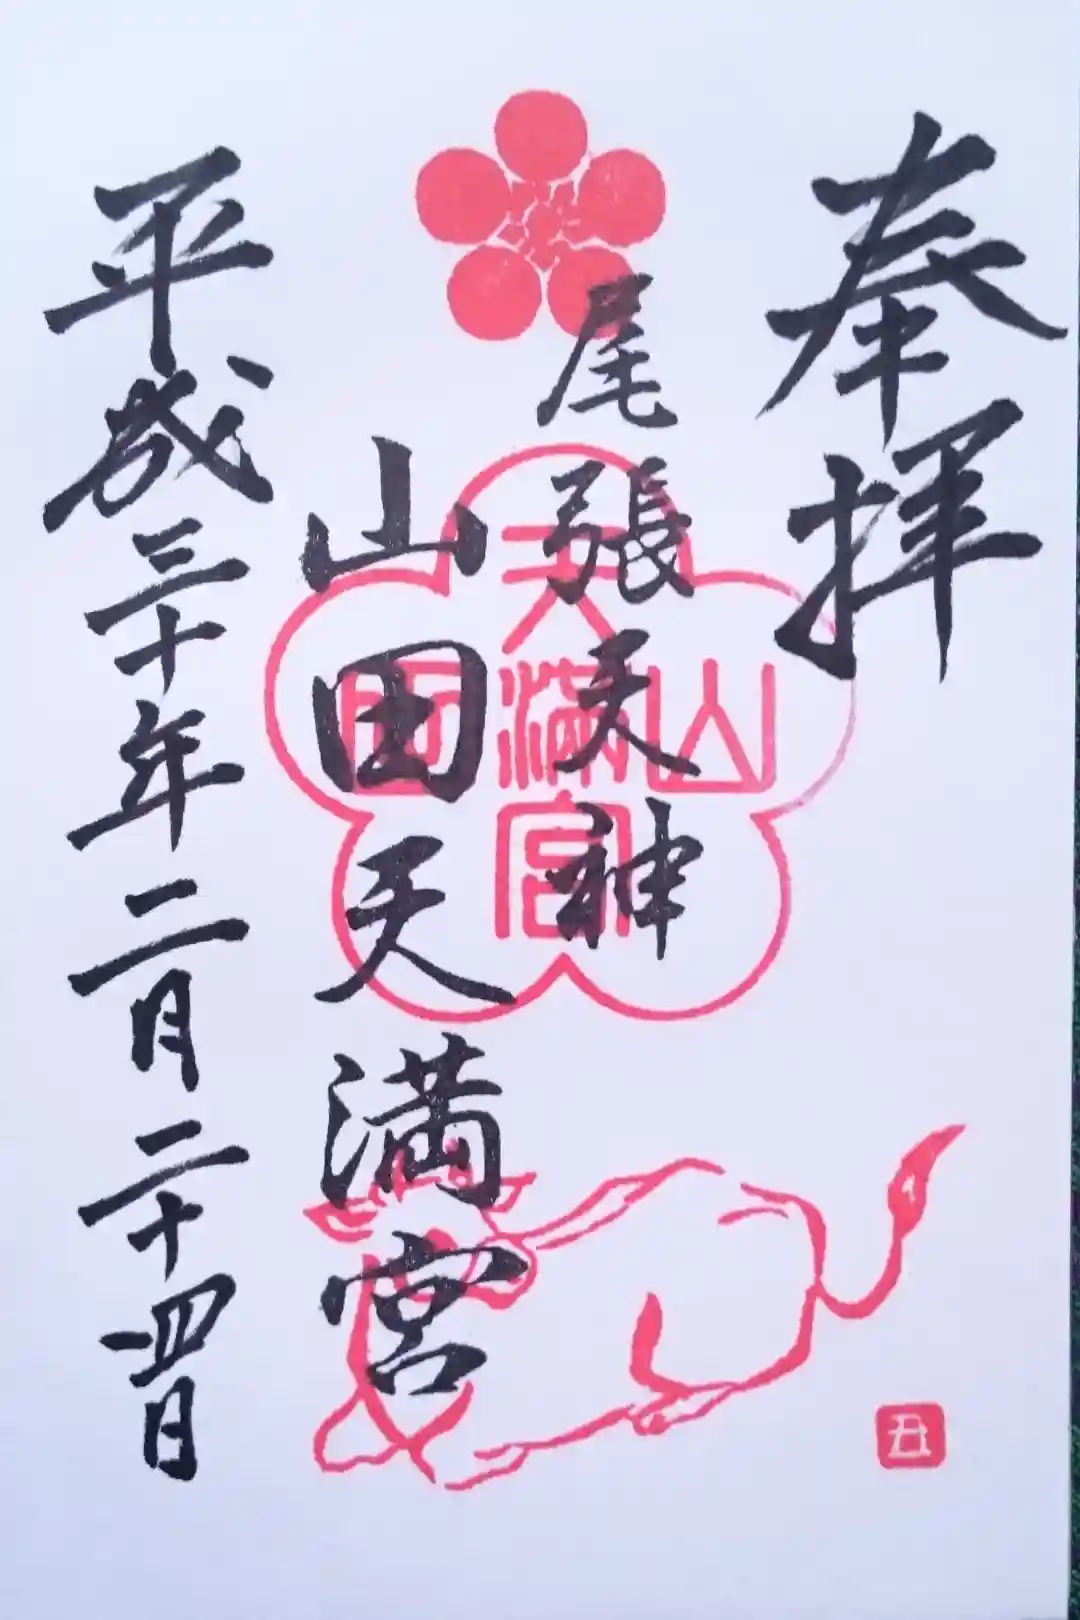 奉拝
尾張天神
山田天満宮
平成三十年二月二十四日
山田天満宮
丑